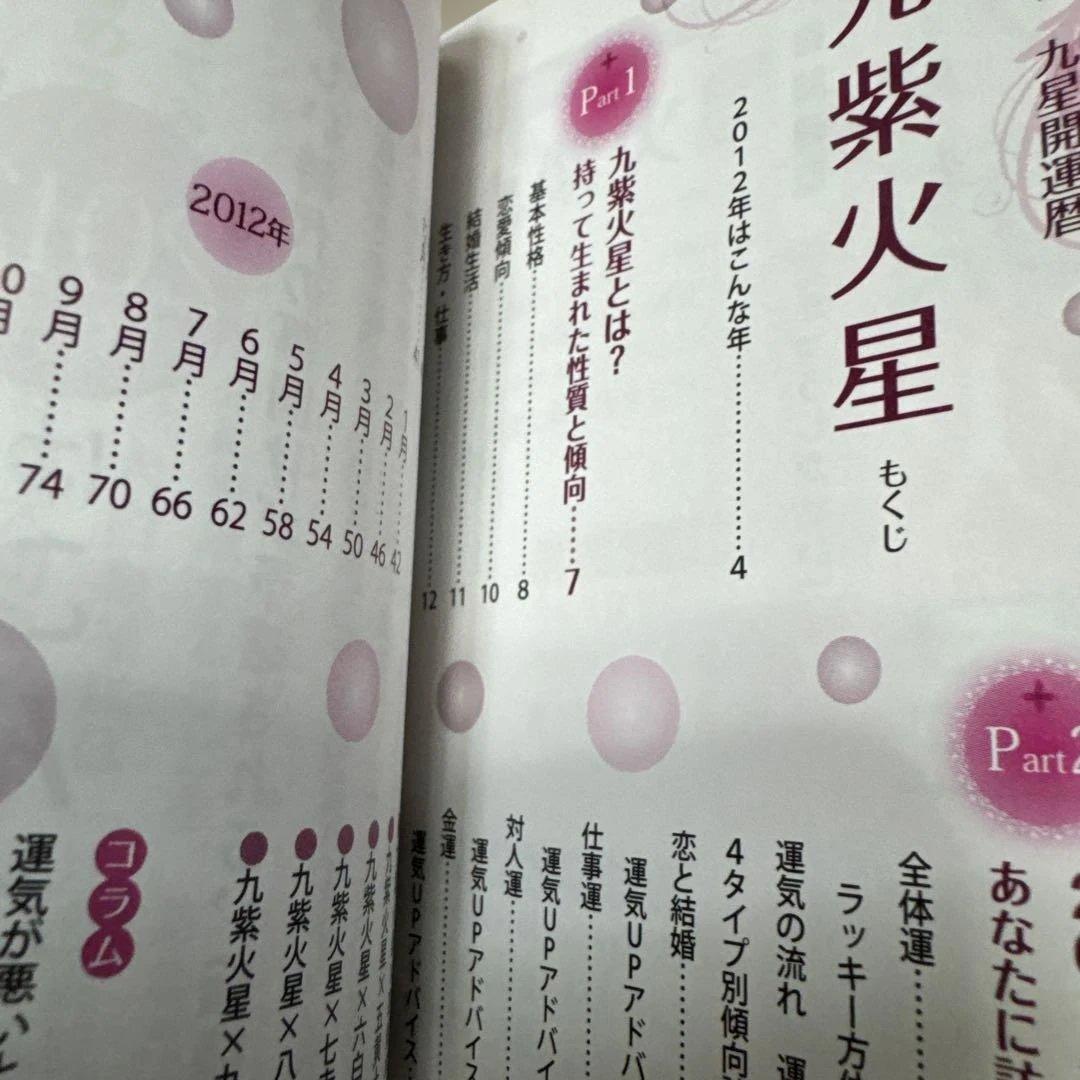 九星開運暦
九紫火星
もくじ
2012年はこんな年…………4
Part 1
九紫火星とは?
持って生まれた性質と傾向……7
基本性格…………8
恋愛傾向…………10
結婚生活…………11
生き方・仕事…………12
Part 2
あなたに
全体運…………
ラッキー方
運気の流れ 運
4タイプ別傾向
恋と結婚…………
運気UPアドバ
仕事運…………
運気UPアドバイ
対人運…………
運気UPアドバイス
金運…………
運気UPアドバイス…
2012年
1月……42
2月……46
3月……50
4月……54
5月……58
6月……62
7月……66
8月……70
9月……74
0月
●九紫火星×五黄
●九紫火星×六白
●九紫火星×七
●九紫火星×八
●九紫火星×九
コラム
運気が悪い